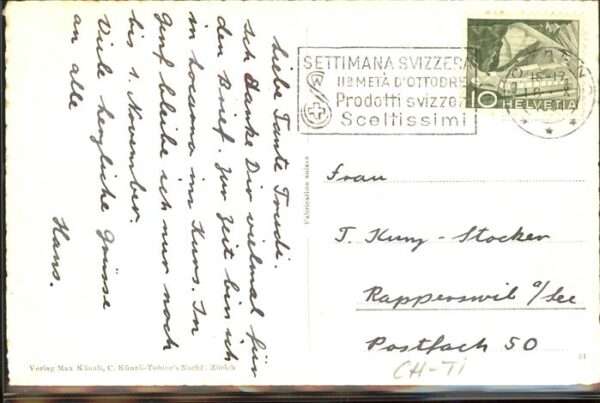 Liebe Tante Trudi.
Ich danke Dir vielmal für
den Brief. Zur Zeit bin ich
in Locarno im Kurs. In
Genf bleibe ich nur noch
bis 1. November.
Viele herzliche Grüsse
an alle
Hans.
SETTIMANA SVIZZERA
IIª METÀ D'OTTOBRE
Prodotti svizzeri
Sceltissimi
10 HELVETIA
Fabrication suisse
Frau
T. Kunz-Stocker
Rapperswil a/See
Postfach 50
CH-TI
Verlag Max Künzli, C. Künzli-Tobler's Nachf. Zürich